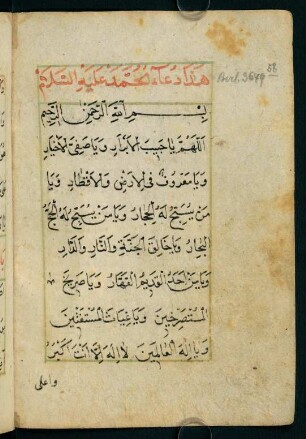 58
هذا دعاء محمد عليه السلام
بسم الله الرحمن الرحيم
اللهم يا حبيب الابرار ويا صفي الاخيار
ويا معروف في الارض والاقطار ويا
من يسبح له البحار ويا من يسبح له
البحار ويا خالق الجنة والنار والدار
ويا من احد القديم القهار ويا صريخ
المستصرخين ويا غياث المستغيثين
ويا اله العالمين لا اله الا انت اكبر
واعلى